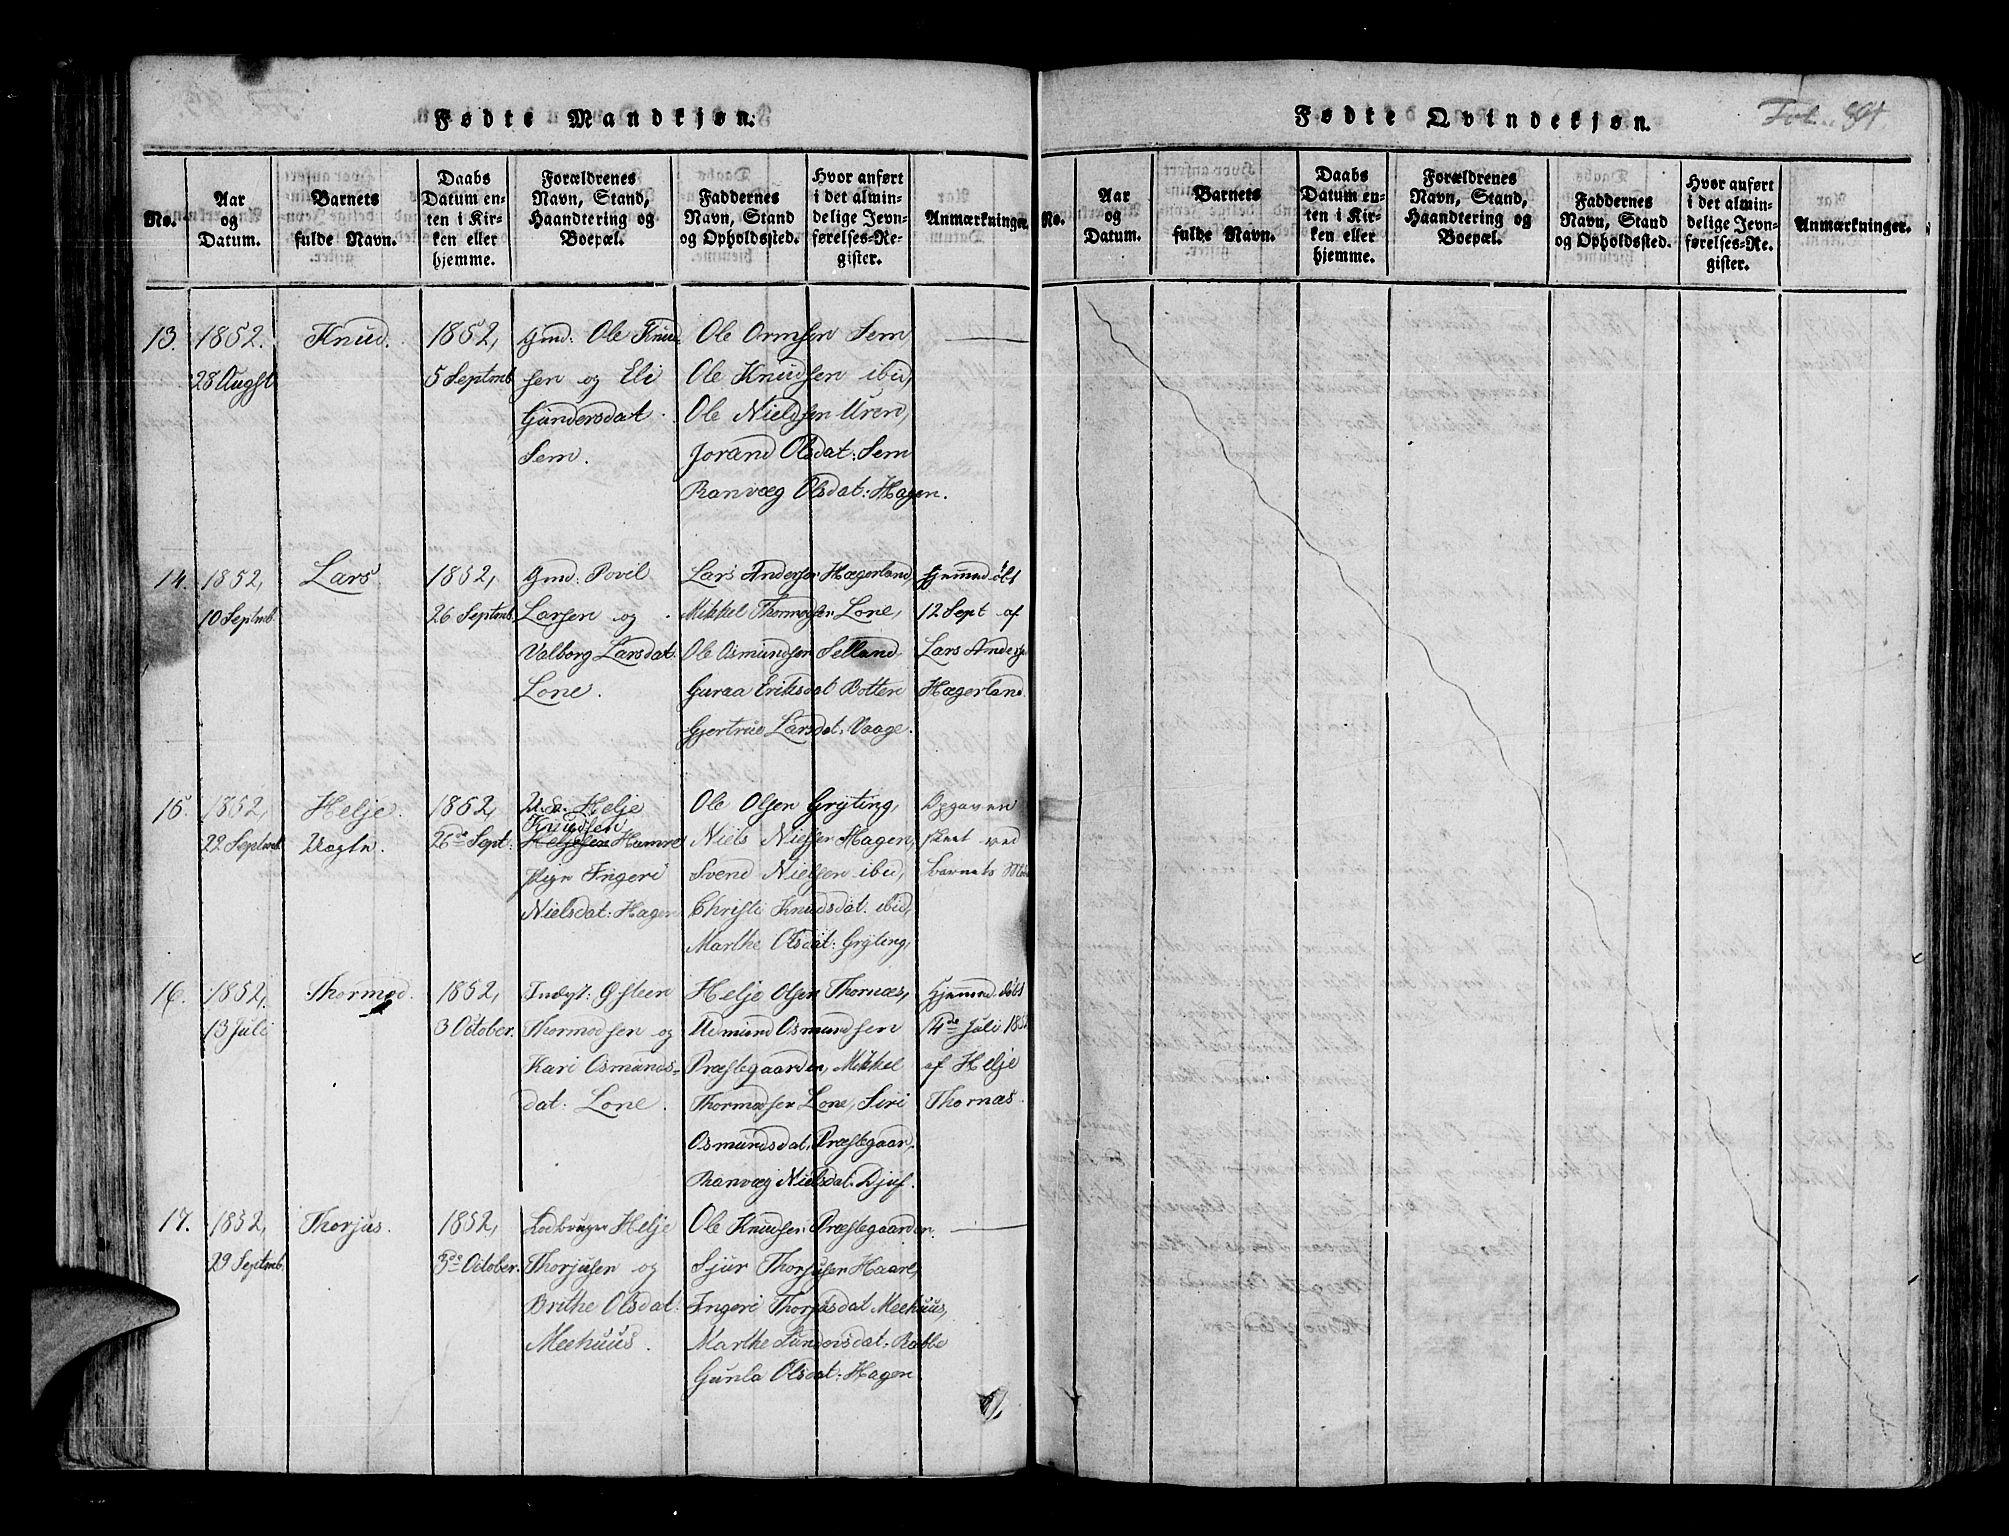 Fødte Mandkjøn.
No.
Aar
og
Datum.
Barnets
fulde Navn.
Daabs
Datum en-
ten i Kir-
ken eller
hjemme.
Forældrenes
Navn, Stand,
Haandtering og
Boepæl.
Faddernes
Navn, Stand
og Opholdssted.
Hvor anført
i det almin-
delige Jevn-
førelses-Re-
gister.
Anmærkninger.
13.
1852.
28 Augst
Knud.
1852,
5 Septmb.
Gmd: Ole Knud
sen og Eli
Gundersdat
Sem.
Ole Ormsen Sem
Ole Knudsen ibid,
Ole Nielssen Uren,
Jorand Olsdat: Sem
Ranvæg Olsdat: Hagen.
14.
1852,
10 Septmb.
Lars
1852,
26 Septmb.
Gmd: Povel
Larsen og
Valborg Larsdat.
Lone.
Lars Andersen Hægerland
Mikkel Thormodsen Lone,
Ole Osmundsen Selland
Guraa Eriksdat Botten
Gjertrue Larsdat. Vaage.
Hjemmedøbt
12 Sept af
Lars Anders
Hægerland.
15.
1852,
22 Septmb.
Helje.
Uægte.
1852,
26de Sept.
U.k. Helje
Knudsen
Heljesen Hamre
pige Ingeri
Nielsdat: Hagen
Ole Olsen Gryting,
Niels Nielsen Hagen,
Svend Nielsen ibid,
Christi Knudsdat. ibid,
Marthe Olsdat: Gryting,
Opgaven
skeet ved
barnets
16.
1852,
13 Juli
Thormod.
1852,
3 October.
Indgt: Østeen
Thormodsen og
Kari Osmunds-
dat: Lone.
Helje Olsen Thornæs,
Osmundsen
Præstegaarden, Mikkel
Thormodsen Lone, Siri
Osmundsdat. Præstegaard.
Ranvæg Nielsdat. Djuf.
Hjemmedøbt
14de Juli 185
af Helje
Thornæs.
17.
1852,
29 Septmb.
Thorjus.
1852,
3de October.
Helje
Thorjusen og
Brithe Olsdat.
Meehuus.
Ole Knudsen Præstegaarden.
Sjur Thorjusen Haare,
Ingeri Thorjusdat Meehuus,
Marthe Gundersdat: Robbe
Gunla Olsdat: Hagen
Fødte Qvindekjøn.
Fol. 84.
No.
Aar
og
Datum.
Barnets
fulde Navn.
Daabs
Datum en-
ten i Kir-
ken eller
hjemme.
Forældrenes
Navn, Stand,
Haandtering og
Boepæl.
Faddernes
Navn, Stand
og Opholdssted.
Hvor anført
i det almin-
delige Jevn-
førelses-Re-
gister.
Anmærkninger.